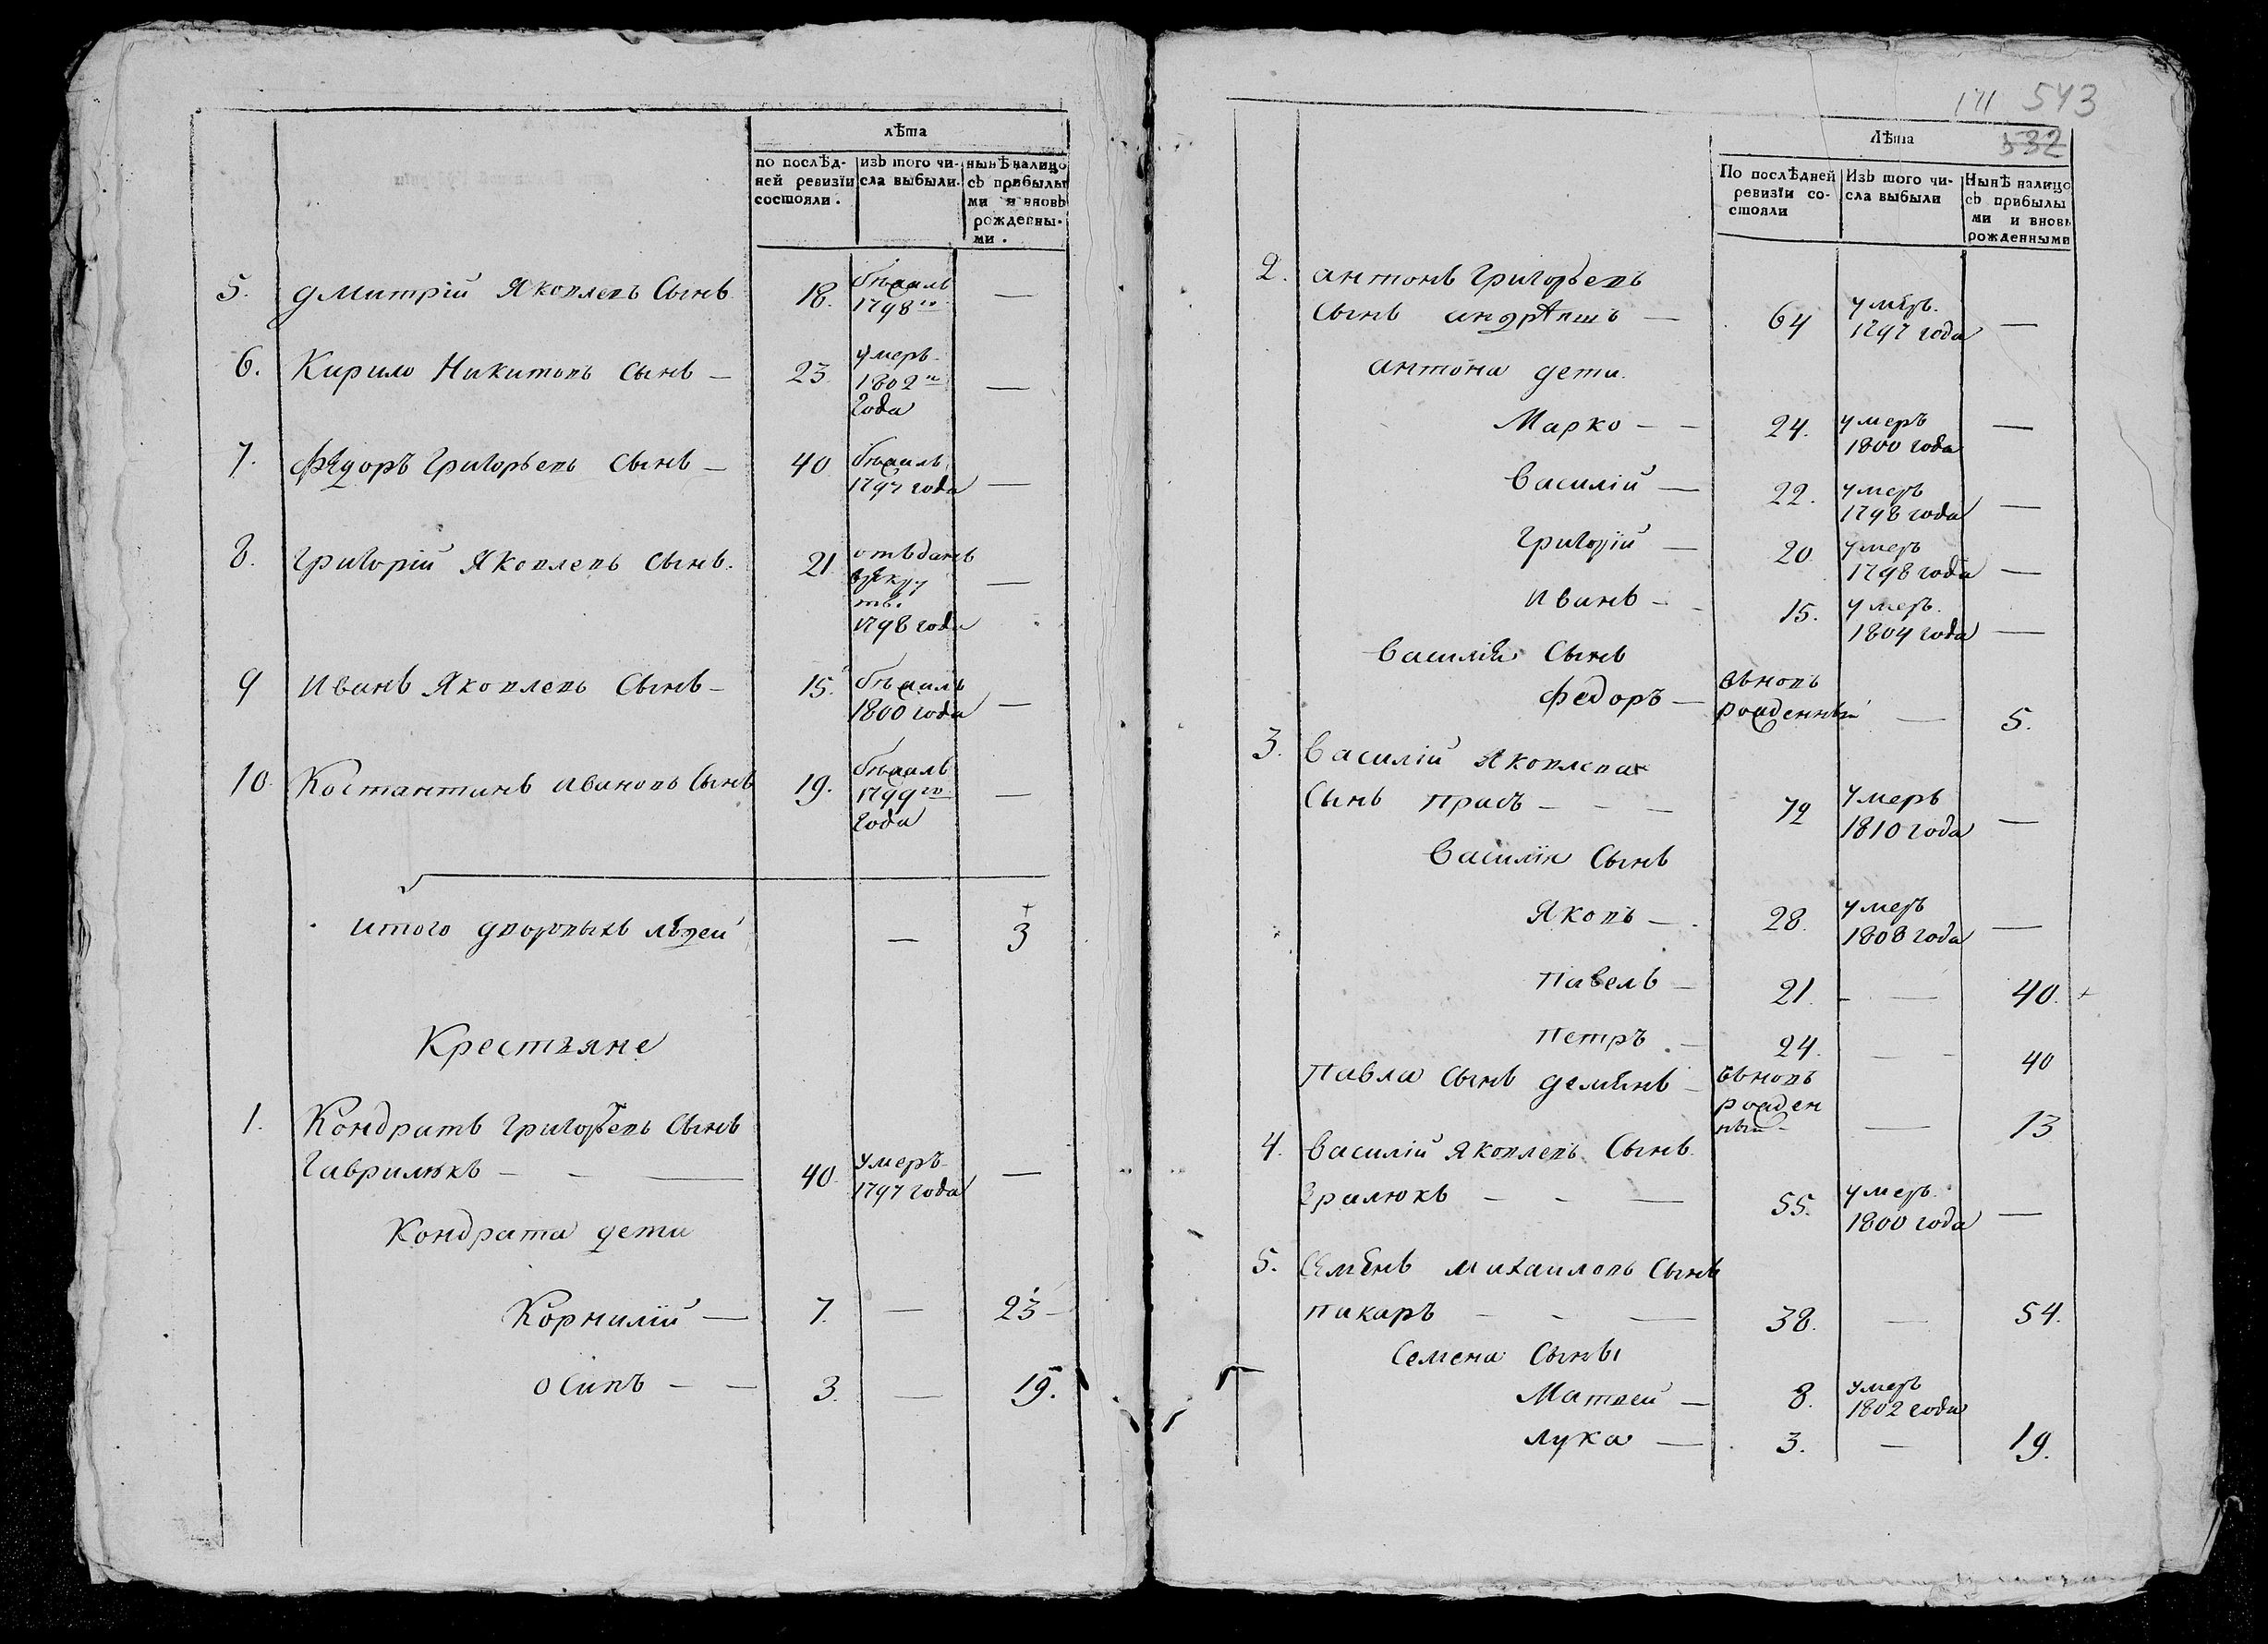 лѣта
по послѣд-
ней ревизїи
состояли.
изъ того чи-
сла выбыли.
нынѣ налицо
съ прибылы
ми и вновь
рожденны-
ми.
5. Дмитрій Яковлевъ Сынъ 18. бѣжалъ —
1798го
6. Кирило Никитовъ Сынъ — 23. умеръ —
1802го
года
7. Федоръ Григорьевъ Сынъ — 40 бѣжалъ —
1797 года
8. Григорій Яковлевъ Сынъ. 21 отъданъ —
врекру
тъ.
1798 года
9 Иванъ Яковлевъ Сынъ — 15. бѣжалъ —
1800 года
10. Костантинъ Ивановъ Сынъ 19. бѣжалъ —
1799го
года
итого дворовыхъ людей — 3
Крестьяне
1. Кондратъ Григорьевъ Сынъ
Гаврилюкъ — — 40 умеръ —
1797 года
Кондрата дети
Корнилій — 7. — 23 —
Осипъ — — 3. — 19.
171 543
532
Лѣта
По послѣдней
ревизїи со-
стояли
Изъ того чи-
сла выбыли
Нынѣ налицо
съ прибылы
ми и вновь
рожденными
2. Антонъ Григорьевъ
Сынъ — 64 умеръ. —
1797 года
Антона дети.
Марко — — 24. умеръ —
1800 года
Василій — 22. умеръ —
1798 года
Григорій — 20. умеръ —
1798 года
Иванъ — 15. умеръ. —
1804 года
Василія Сынъ
Федоръ — вьновъ
рожденный — 5.
3. Василій Яковлевъ
Сынъ — — — 72 умеръ —
1810 года
Василія Сынъ
Яковъ — 28. умеръ —
1808 года
Павелъ — 21. — 40.
Петръ — 24. — 40
Павла Сынъ Деміянъ — вьновъ
рожден
ный — 13
4. Василій Яковлевъ Сынъ.
— — — 55. умеръ. —
1800 года
5. Семенъ Михайловъ Сынъ
Пакаръ — — — 38. — 54.
Семена Сыны
Матвей — 8. умеръ
1802 года
Лука — 3. — 19.